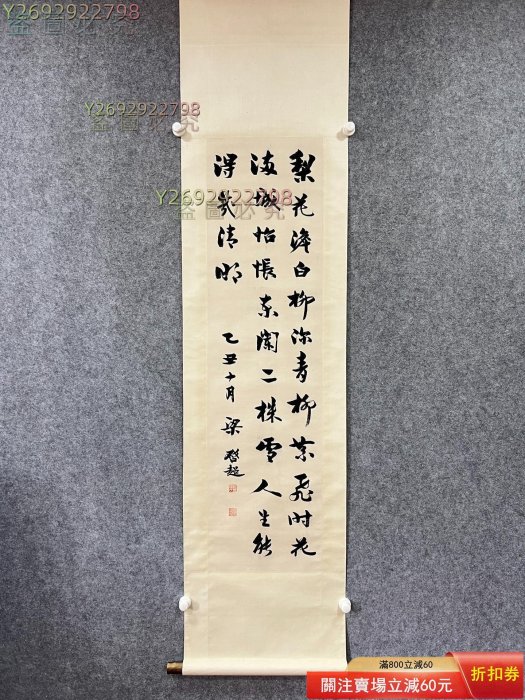 Y2692922798
盜圖必究
Y2692922798
盜圖必究
Y2692922798
盜圖必究
梨花淡白柳深青柳絮飞时花
满城怊怅东阑二株雪人生能
得几清明
乙丑十月 梁启超
滿800立減60
關注賣場立減60元
折扣券